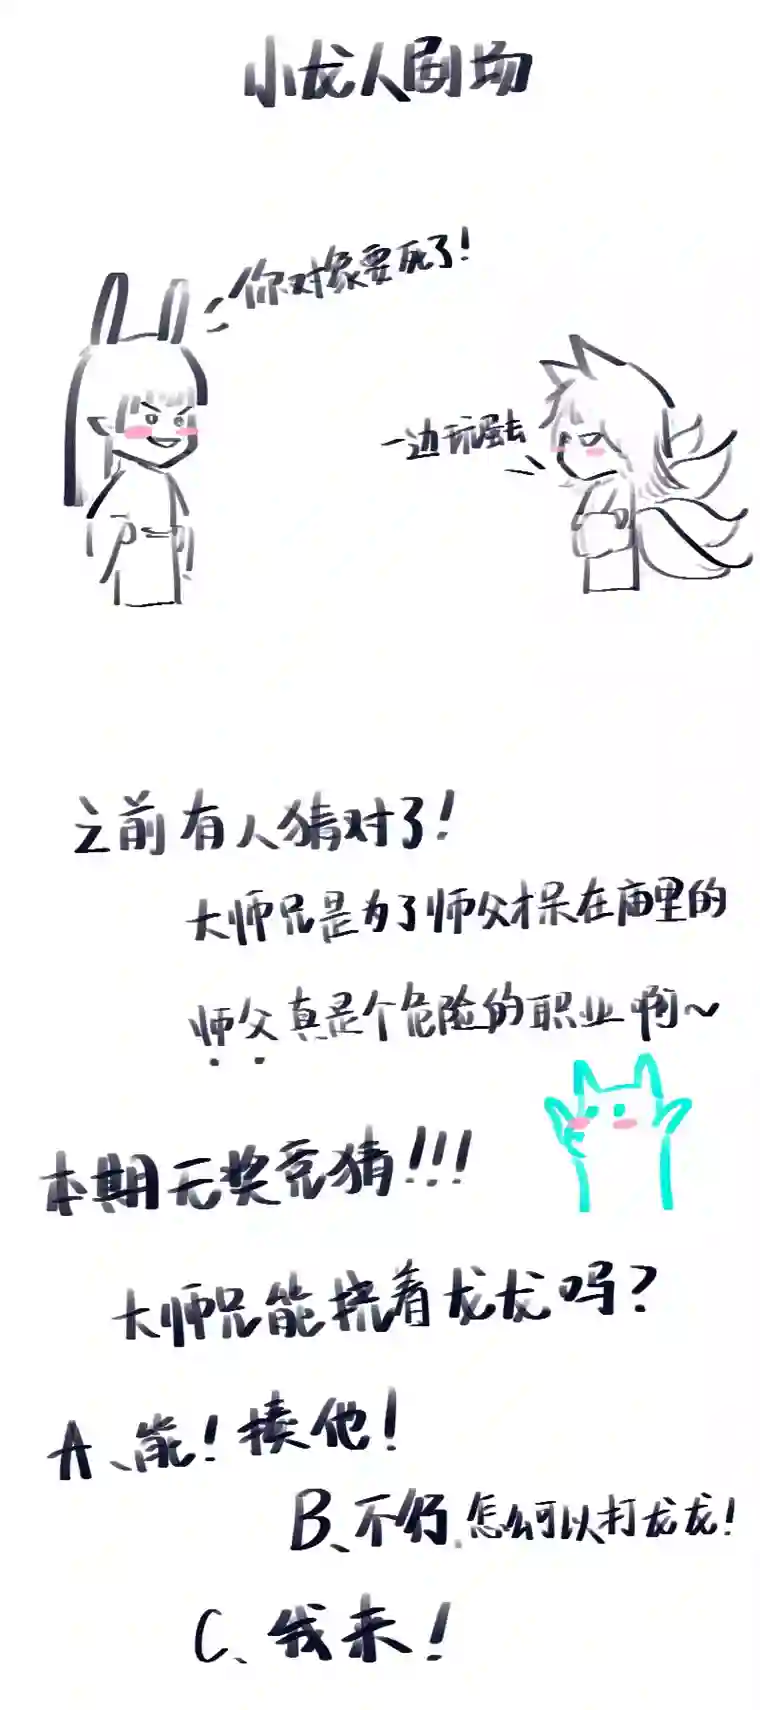 小龙人剧场
你对象要死了!
一边玩蛋去
之前有人猜对了!
大师兄是为了师父才呆在庙里的
师父真是个危险的职业啊~
本期无奖竞猜!!!
大师兄能挠着龙龙吗?
A、能!揍他!
B、不行.怎么可以打龙龙!
C、我来!